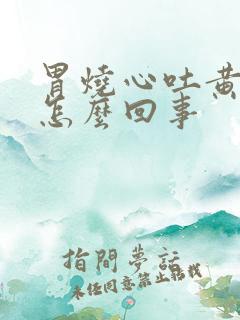 胃燒心吐黃
怎麼回事
指間夢話
未經同意禁止轉載